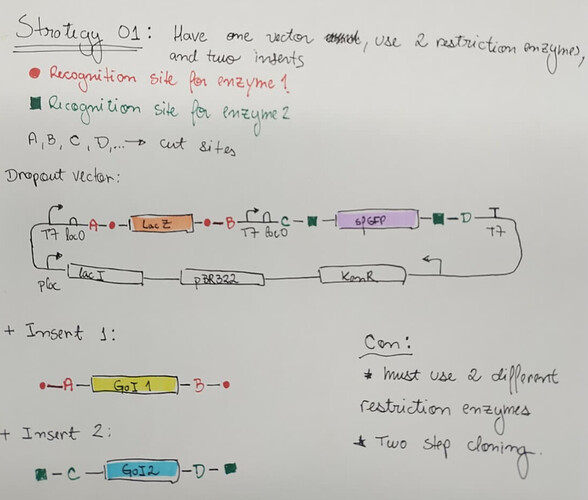 Strategy 01: Have one vector, use 2 restriction enzymes,
and two inserts
Recognition site for enzyme 1
Recognition site for enzyme 2
A, B, C, D,... → cut sites
Dropout vector:
T7 lacO A LacZ B T7 lacO C sfGFP D T7
plac lacI pBR322 KanR
+ Insert 1:
A GoI 1 B
+ Insert 2:
C GoI2 D
Con:
* must use 2 different
restriction enzymes
* Two step cloning.